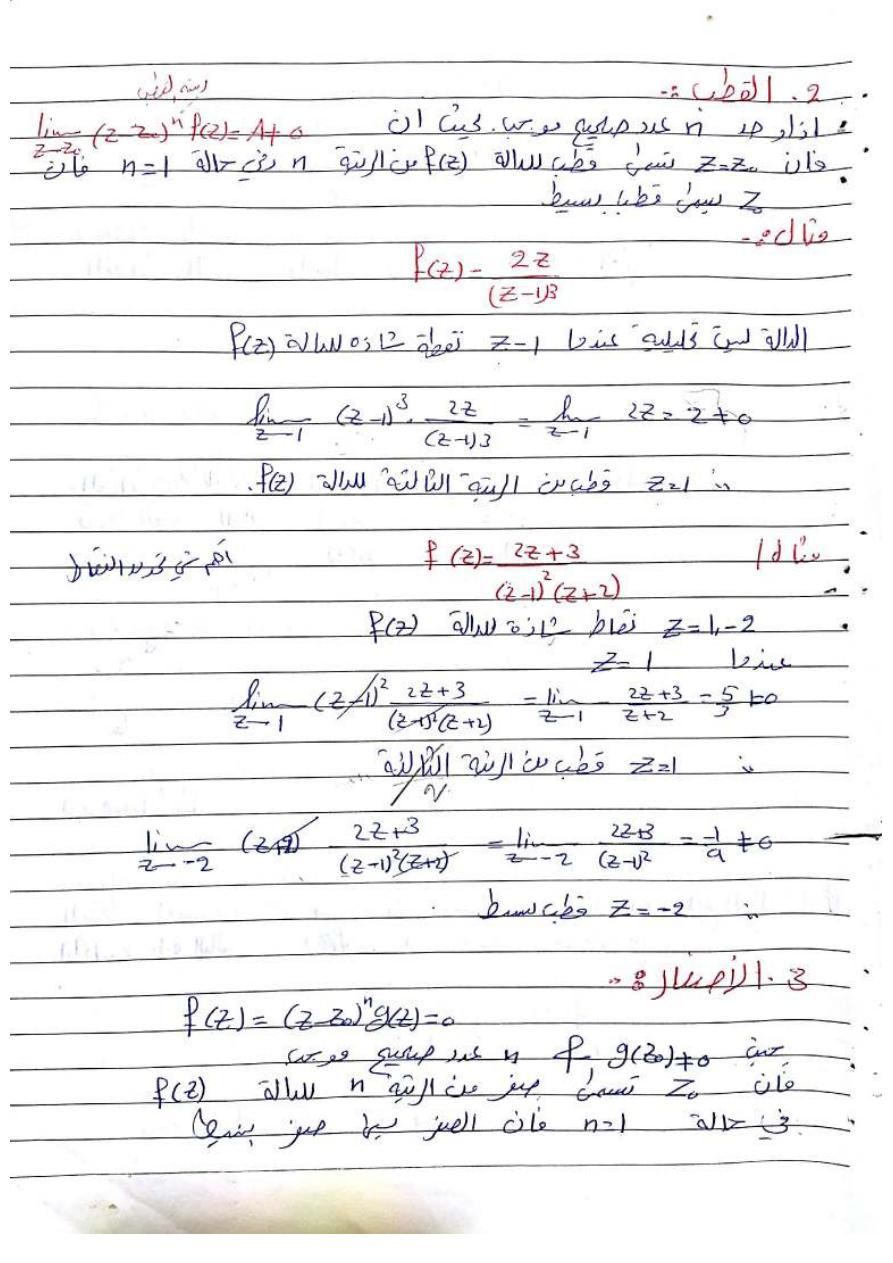 2. القطب :-
رتبة القطب
اذا وجد n عدد صحيح موجب. بحيث ان lim z→z₀ (z-z₀)ⁿ f(z) = A ≠ 0
فان z=z₀ تسمى قطب للدالة f(z) من الرتبة n وفي حالة n=1 فأن
z₀ يسمى قطبا بسيط
مثال :-
f(z) = 2z / (z-1)3
الدالة ليس تحليلية عندما z=1 نقطة شاذه للدالة f(z)
lim z→1 (z-1)³ . 2z / (z-1)3 = lim z→1 2z = 2 ≠ 0
∴ z=1 قطب من الرتبة الثالثة للدالة f(z).
مثال / f(z) = 2z+3 / (z-1)²(z+2) اهم شي تحديد النقاط
z=1,-2 نقاط شاذة للدالة f(z)
عندما z=1
lim z→1 (z-1)² 2z+3 / (z-1)²(z+2) = lim z→1 2z+3 / z+2 = 5/3 ≠ 0
∴ z=1 قطب من الرتبة الثالثة
lim z→-2 (z+2) 2z+3 / (z-1)²(z+2) = lim z→-2 2z+3 / (z-1)² = -1/9 ≠ 0
∴ z=-2 قطب بسيط
3. الأصفار :-
f(z) = (z-z₀)ⁿ g(z) = 0
حيث g(z₀) ≠ 0 n عدد صحيح موجب
فأن z₀ تسمى صفر من الرتبة n للدالة f(z)
في حالة n=1 فأن الصفر